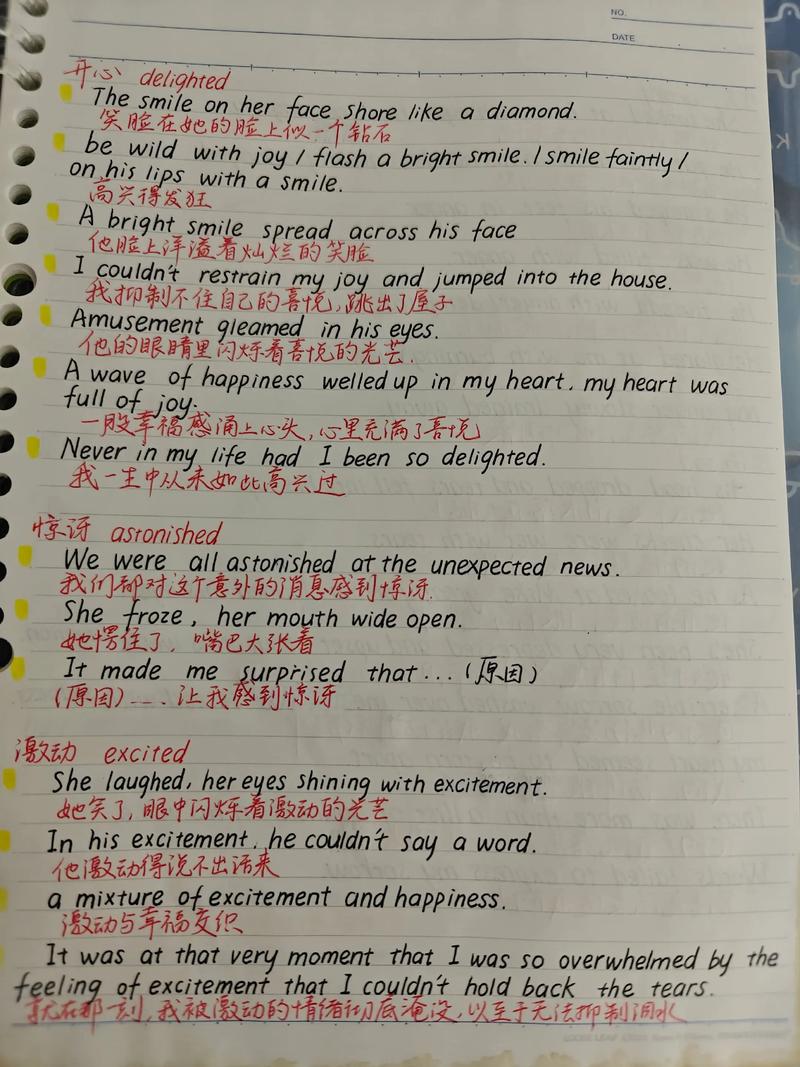 NO.
DATE
开心 delighted
The smile on her face shore like a diamond.
笑脸在她的脸上似一个钻石
be wild with joy / flash a bright smile. / smile faintly /
on his lips with a smile.
高兴得发狂
A bright smile spread across his face
他脸上洋溢着灿烂的笑脸
I couldn't restrain my joy and jumped into the house.
我抑制不住自己的喜悦,跳出了屋子
Amusement gleamed in his eyes.
他的眼睛里闪烁着喜悦的光芒.
A wave of happiness welled up in my heart. my heart was
full of joy.
一股幸福感涌上心头,心里充满了喜悦
Never in my life had I been so delighted.
我一生中从未如此高兴过
惊讶 astonished
We were all astonished at the unexpected news.
我们都对这个意外的消息感到惊讶.
She froze, her mouth wide open.
她愣住了,嘴巴大张着
It made me surprised that...(原因)
(原因)....让我感到惊讶
激动 excited
She laughed, her eyes shining with excitement.
她笑了,眼中闪烁着激动的光芒
In his excitement, he couldn't say a word.
他激动得说不出话来
a mixture of excitement and happiness.
激动与幸福交织
It was at that very moment that I was so overwhelmed by the
feeling of excitement that I couldn't hold back the tears.
就在那一刻,我被激动的情绪彻底淹没,以至于无法抑制泪水